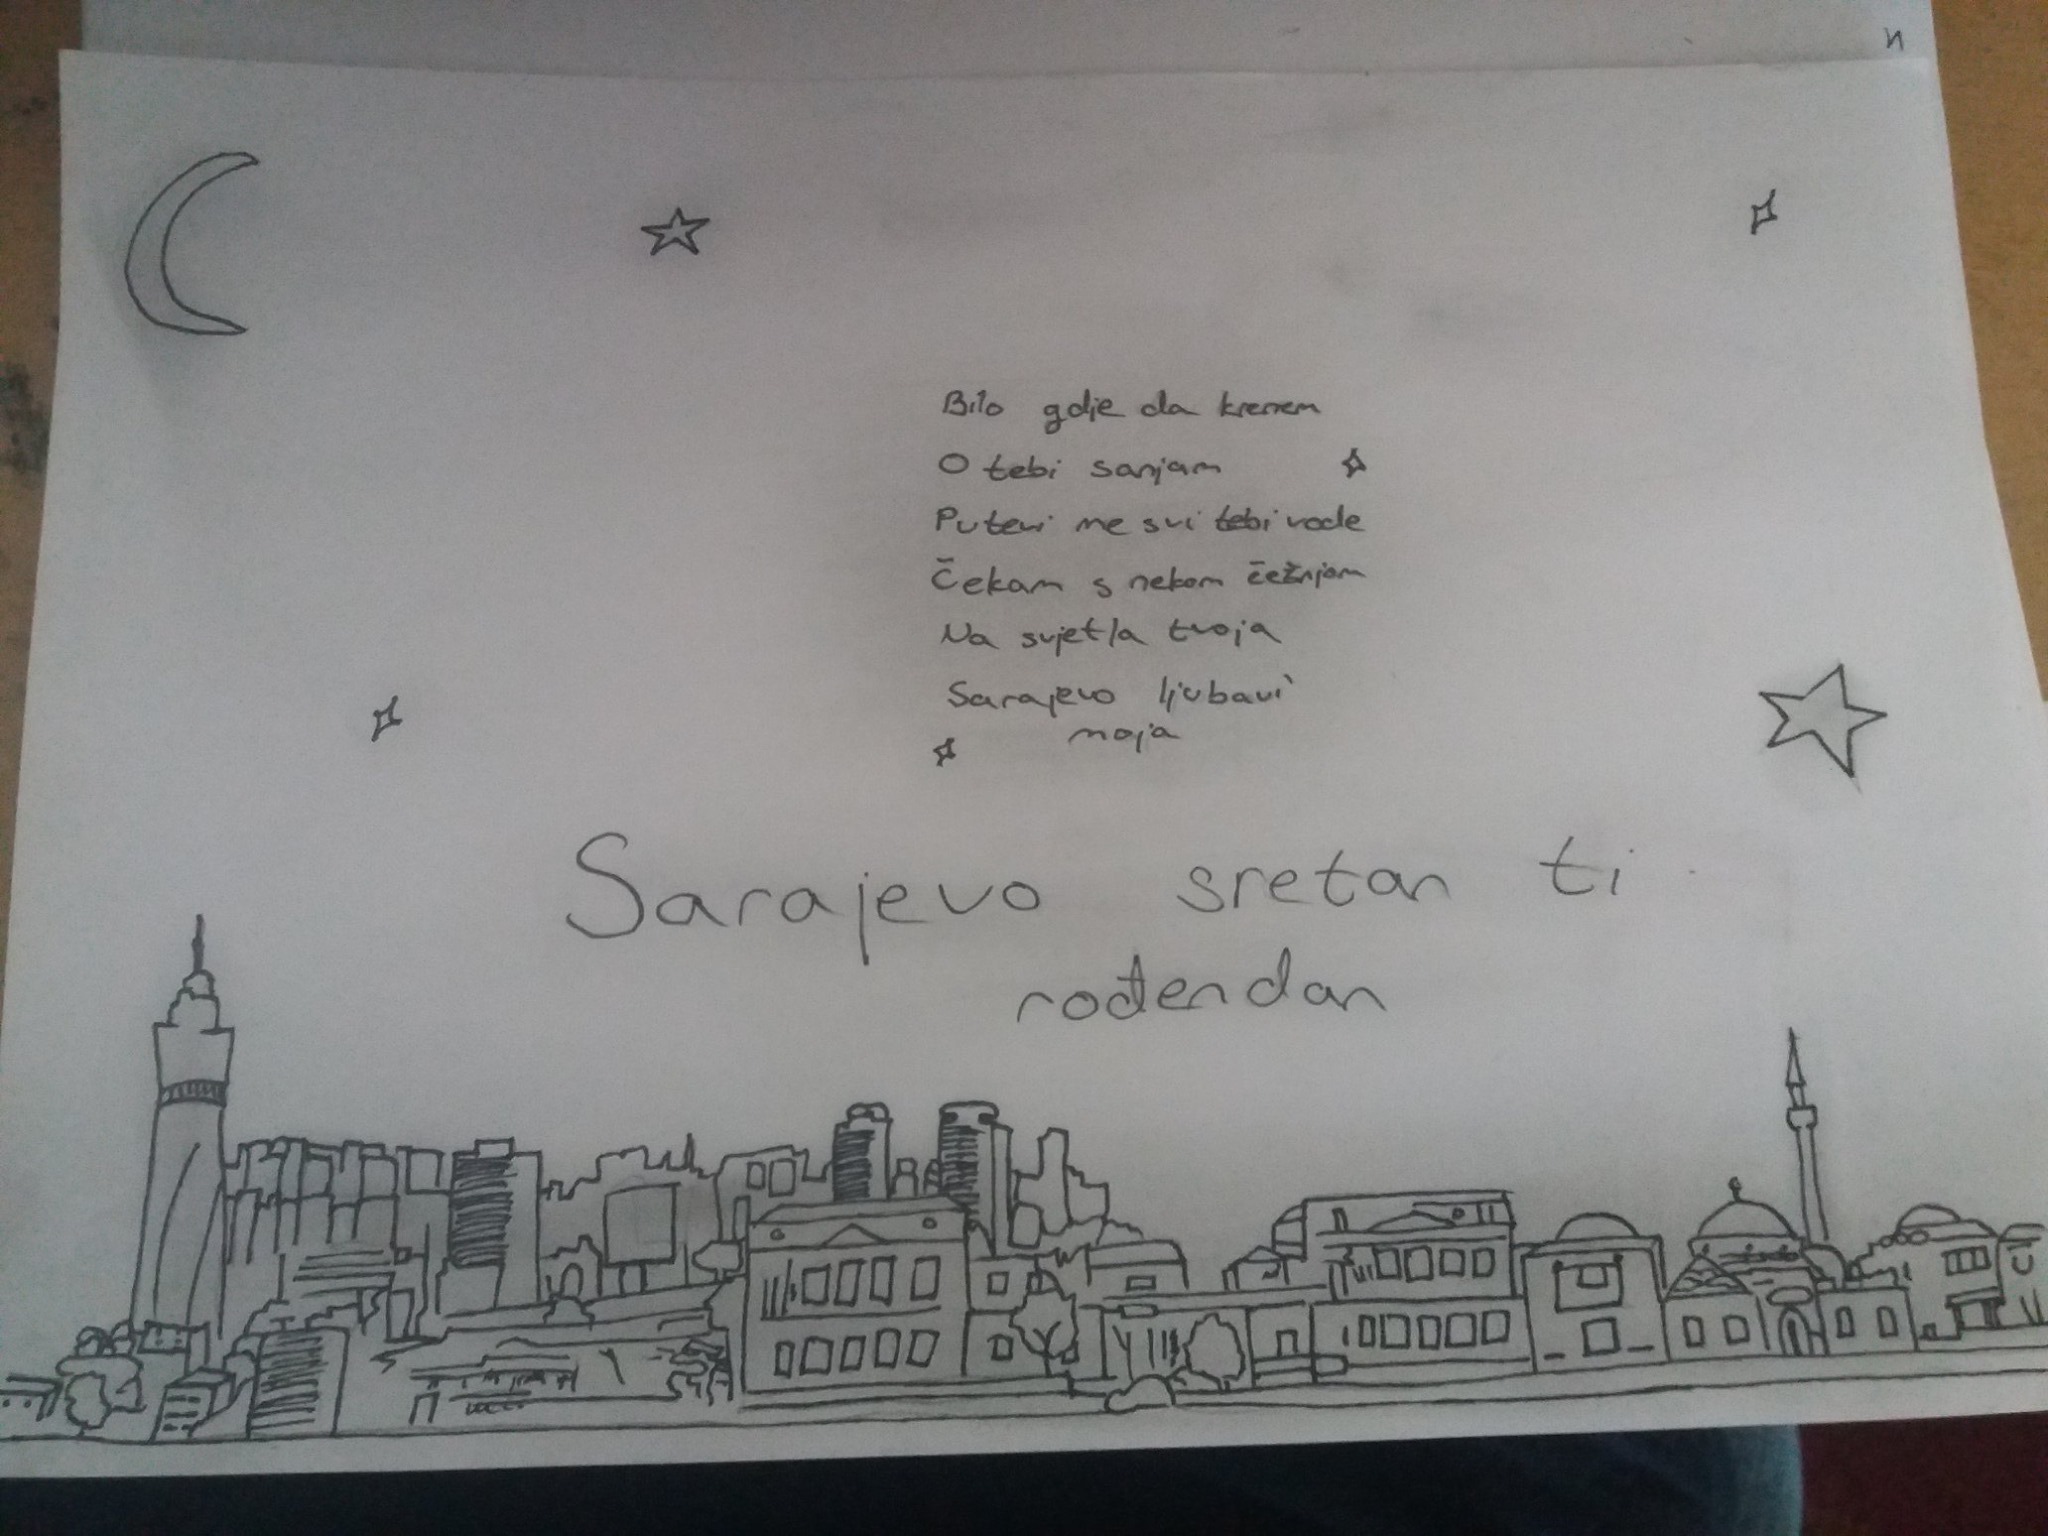 И
Bilo gdje da krenem
O tebi sanjam
Putevi me svi tebi vode
Čekam s nekom čežnjom
Na svjetla tvoja
Sarajevo ljubavi
moja
Sarajevo sretan ti
rođendan